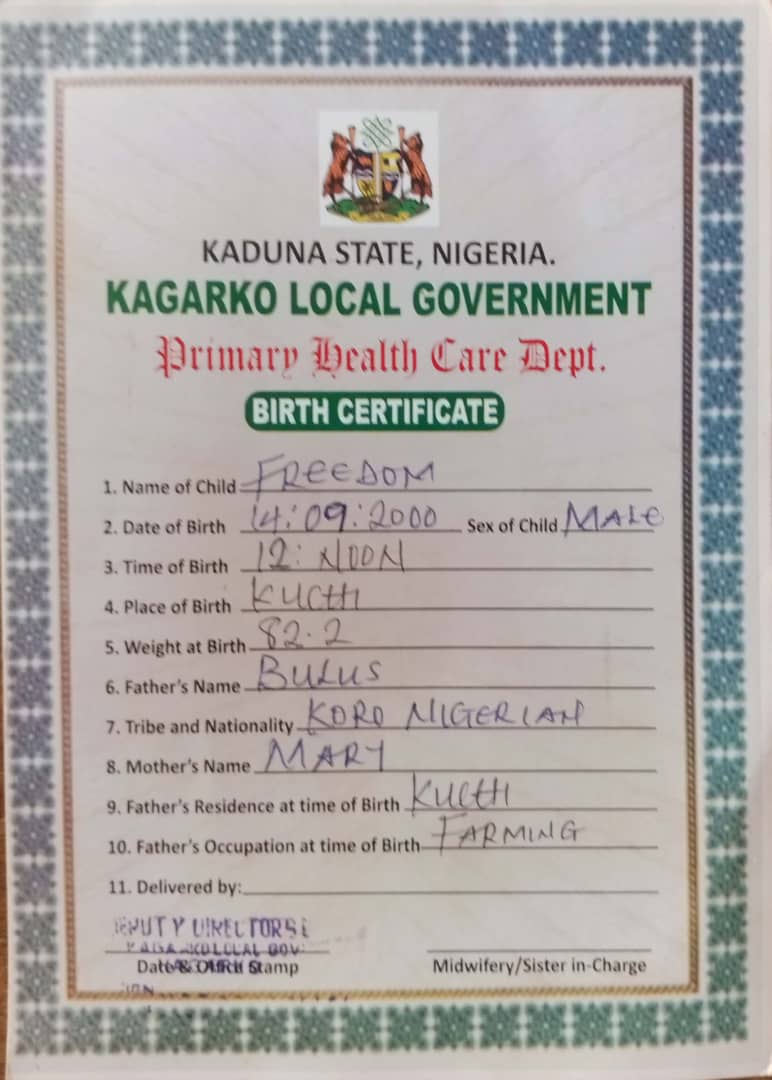 KADUNA STATE, NIGERIA.
KAGARKO LOCAL GOVERNMENT
Primary Health Care Dept.
BIRTH CERTIFICATE
1. Name of Child FREEDOM
2. Date of Birth 14:09:2000 Sex of Child MALE
3. Time of Birth 12: NOON
4. Place of Birth KUCHI
5. Weight at Birth 82.2
6. Father's Name BULUS
7. Tribe and Nationality KORO NIGERIAN
8. Mother's Name MARY
9. Father's Residence at time of Birth KUCHI
10. Father's Occupation at time of Birth FARMING
11. Delivered by:
Date & Office Stamp
Midwifery/Sister in-Charge